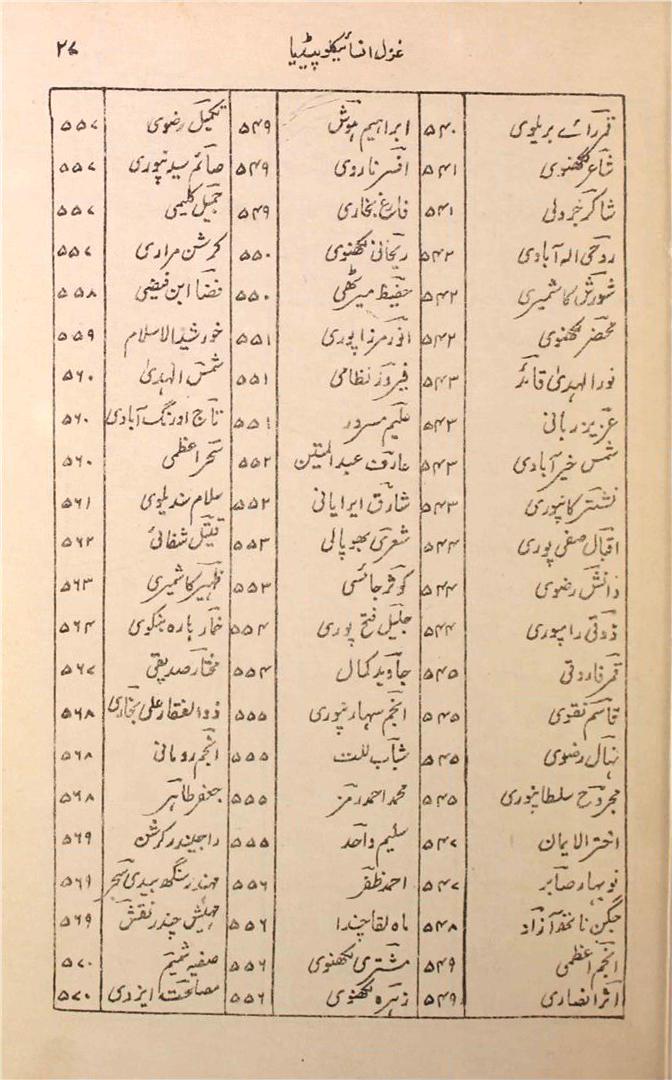 غزل انسائیکلوپیڈیا ۲۷
قمر رائے بریلوی ۵۴۰ ابراہیم ہوش ۵۴۹ تکمیل رضوی ۵۵۷
شاعر لکھنوی ۵۴۱ افسر ناروی ۵۴۹ صائم سیدنپوری ۵۵۷
شاکر جرولی ۵۴۱ فارغ بخاری ۵۴۹ جمیل کلیمی ۵۵۷
روحی الہ آبادی ۵۴۲ ریحانی لکھنوی ۵۵۰ کرشن مراری ۵۵۷
شورش کاشمیری ۵۴۲ حفیظ میرٹھی ۵۵۰ فضا ابن فیضی ۵۵۸
محضر لکھنوی ۵۴۲ انور مرزا پوری ۵۵۱ خورشید الاسلام ۵۵۹
نور الہدیٰ قائد ۵۴۳ فیروز نظامی ۵۵۱ شمس الہدیٰ ۵۶۰
عزیز ربانی ۵۴۳ علیم مسرور ۵۵۱ تاج اورنگ آبادی ۵۶۰
شمس خیرآبادی ۵۴۳ عارف عبدالمتین ۵۵۲ سحر اعظمی ۵۶۰
نشتر کانپوری ۵۴۳ شارق ایرایانی ۵۵۲ سلام سندیلوی ۵۶۱
اقبال صفی پوری ۵۴۴ شعری بھوپالی ۵۵۳ قتیل شفائی ۵۶۲
دانش رضوی ۵۴۴ کوثر جائسی ۵۵۳ ظہیر کاشمیری ۵۶۳
ذوقی رامپوری ۵۴۴ جلیل فتح پوری ۵۵۴ خمار بارہ بنکوی ۵۶۴
قمر فاروقی ۵۴۵ جاوید کمال ۵۵۴ مختار صدیقی ۵۶۷
قاسم نقوی ۵۴۵ انجم سہارنپوری ۵۵۵ ذوالفقار علی بخاری ۵۶۸
نہال رضوی ۵۴۵ شباب للت ۵۵۵ انجم رومانی ۵۶۸
مجروح سلطانپوری ۵۴۵ محمد احمد رمز ۵۵۵ جعفر طاہر ۵۶۸
اختر الایمان ۵۴۷ سلیم واحد ۵۵۵ راجیندر کرشن ۵۶۹
نوبہار صابر ۵۴۷ احمد ظفر ۵۵۶ مہندر سنگھ بیدی سحر ۵۶۹
جگن ناتھ آزاد ۵۴۸ ماہ لقا چندا ۵۵۶ مہیش چندر نقش ۵۶۹
انجم اعظمی ۵۴۹ مشتری لکھنوی ۵۵۶ صفیہ شمیم ۵۷۰
اثر انصاری ۵۴۹ زہرہ لکھنوی ۵۵۶ مصالحت ایزدی ۵۷۰